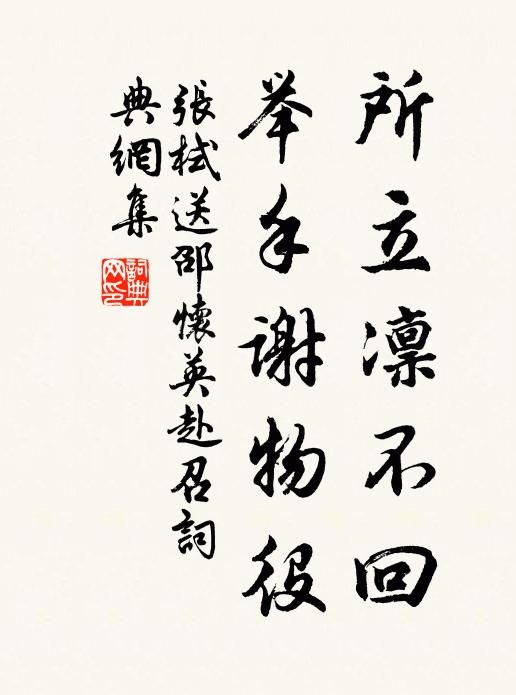 所立凛不回
举手谢物役
張栻送邵懷英赴召詞
典網集
詞典
网印